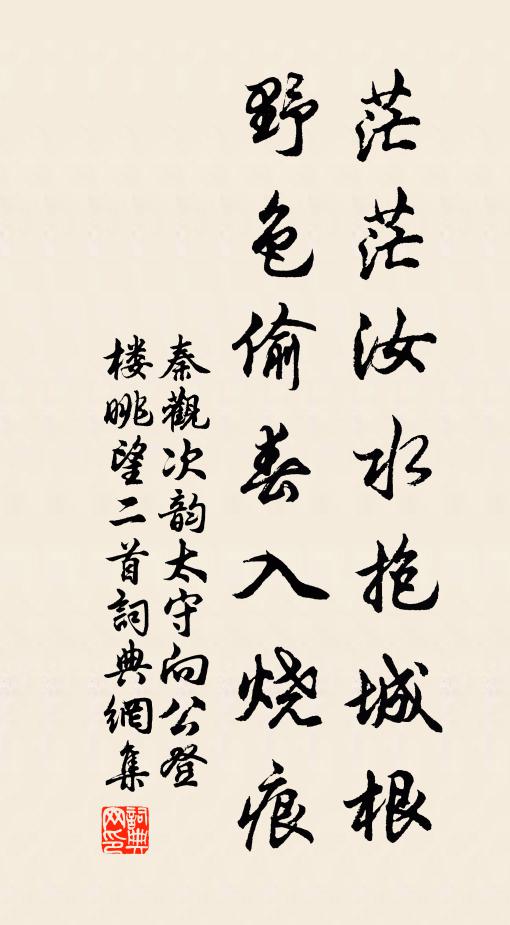 茫茫汝水抱城根
野色偷春入烧痕
秦觀次韵太守向公登
楼眺望二首詞典網集
詞典网印